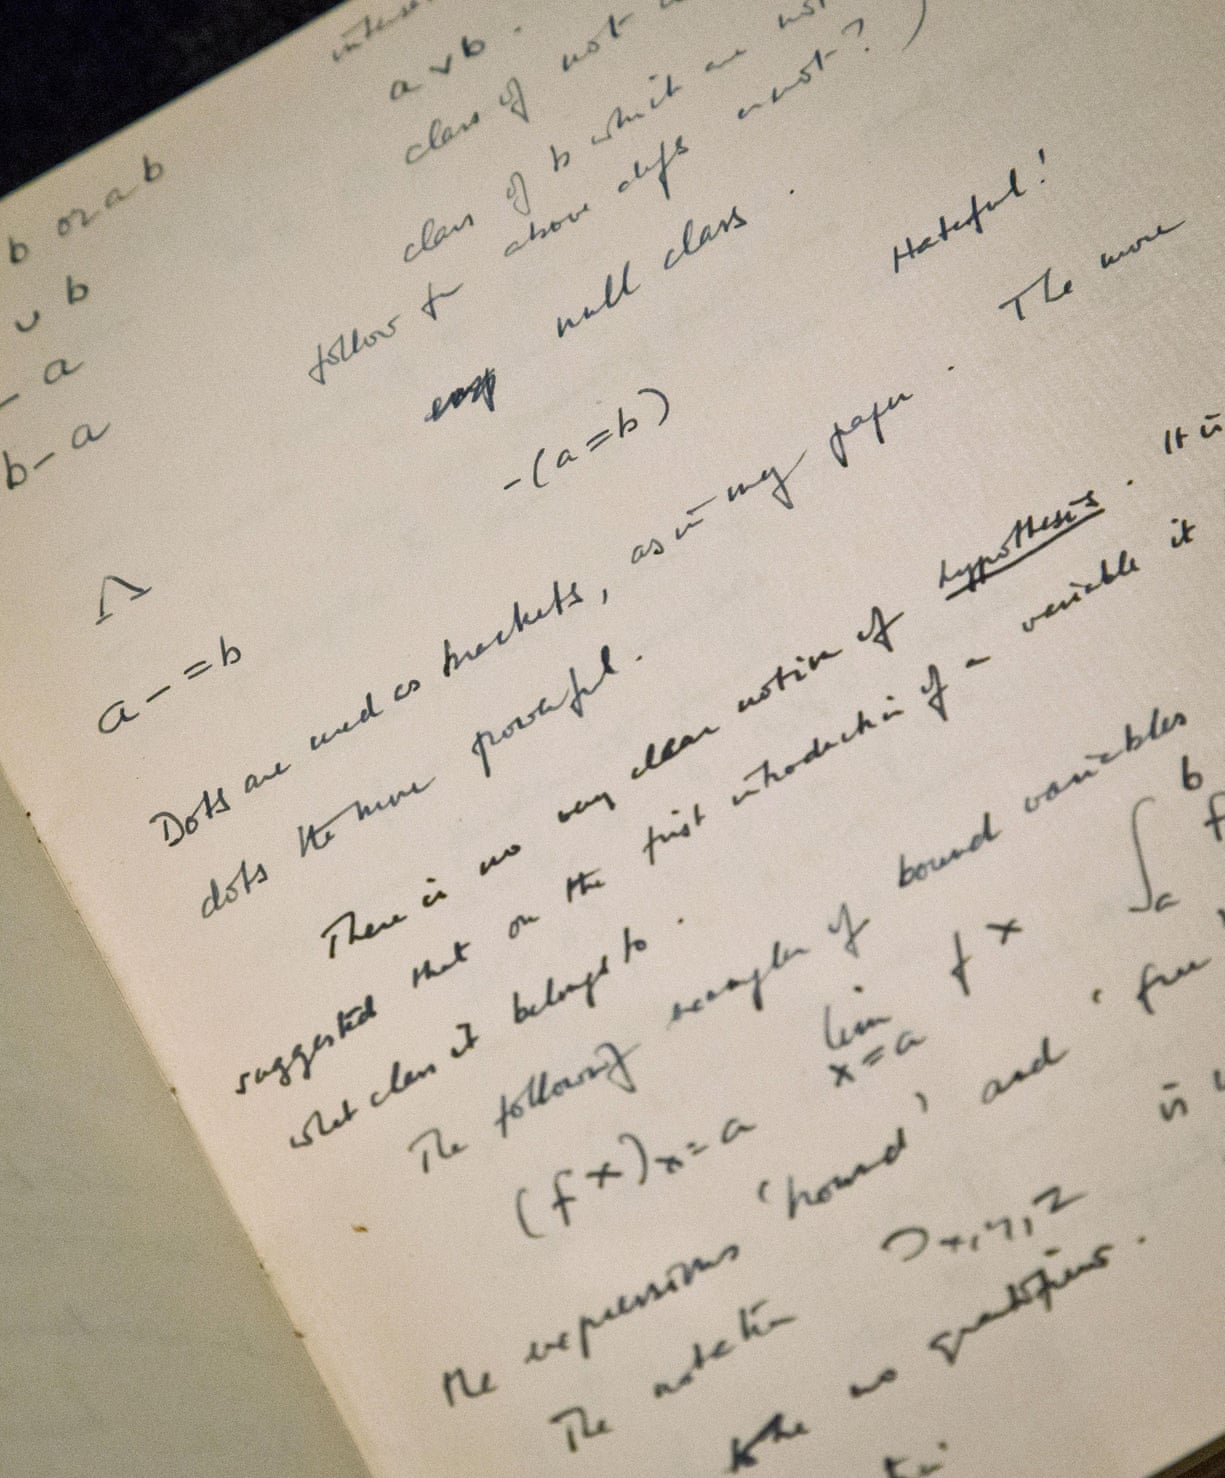 a ∨ b .
b or a b class of not
∪ b class of b which are not
– a follow from above defs or not? )
b – a
Λ null class . Hateful!
a – = b –(a = b)
Dots are used as brackets, as in my paper . The more
dots the more powerful .
There is no very clear notion of hypothesis . It is
suggested that on the first introduction of a variable it
what class it belongs to .
The following examples of bound variables
(f x)x = a lim x = a f x ∫ a b f
the expressions 'bound' and 'free
The notation ⊃ x, y, z is
the no quantifiers .